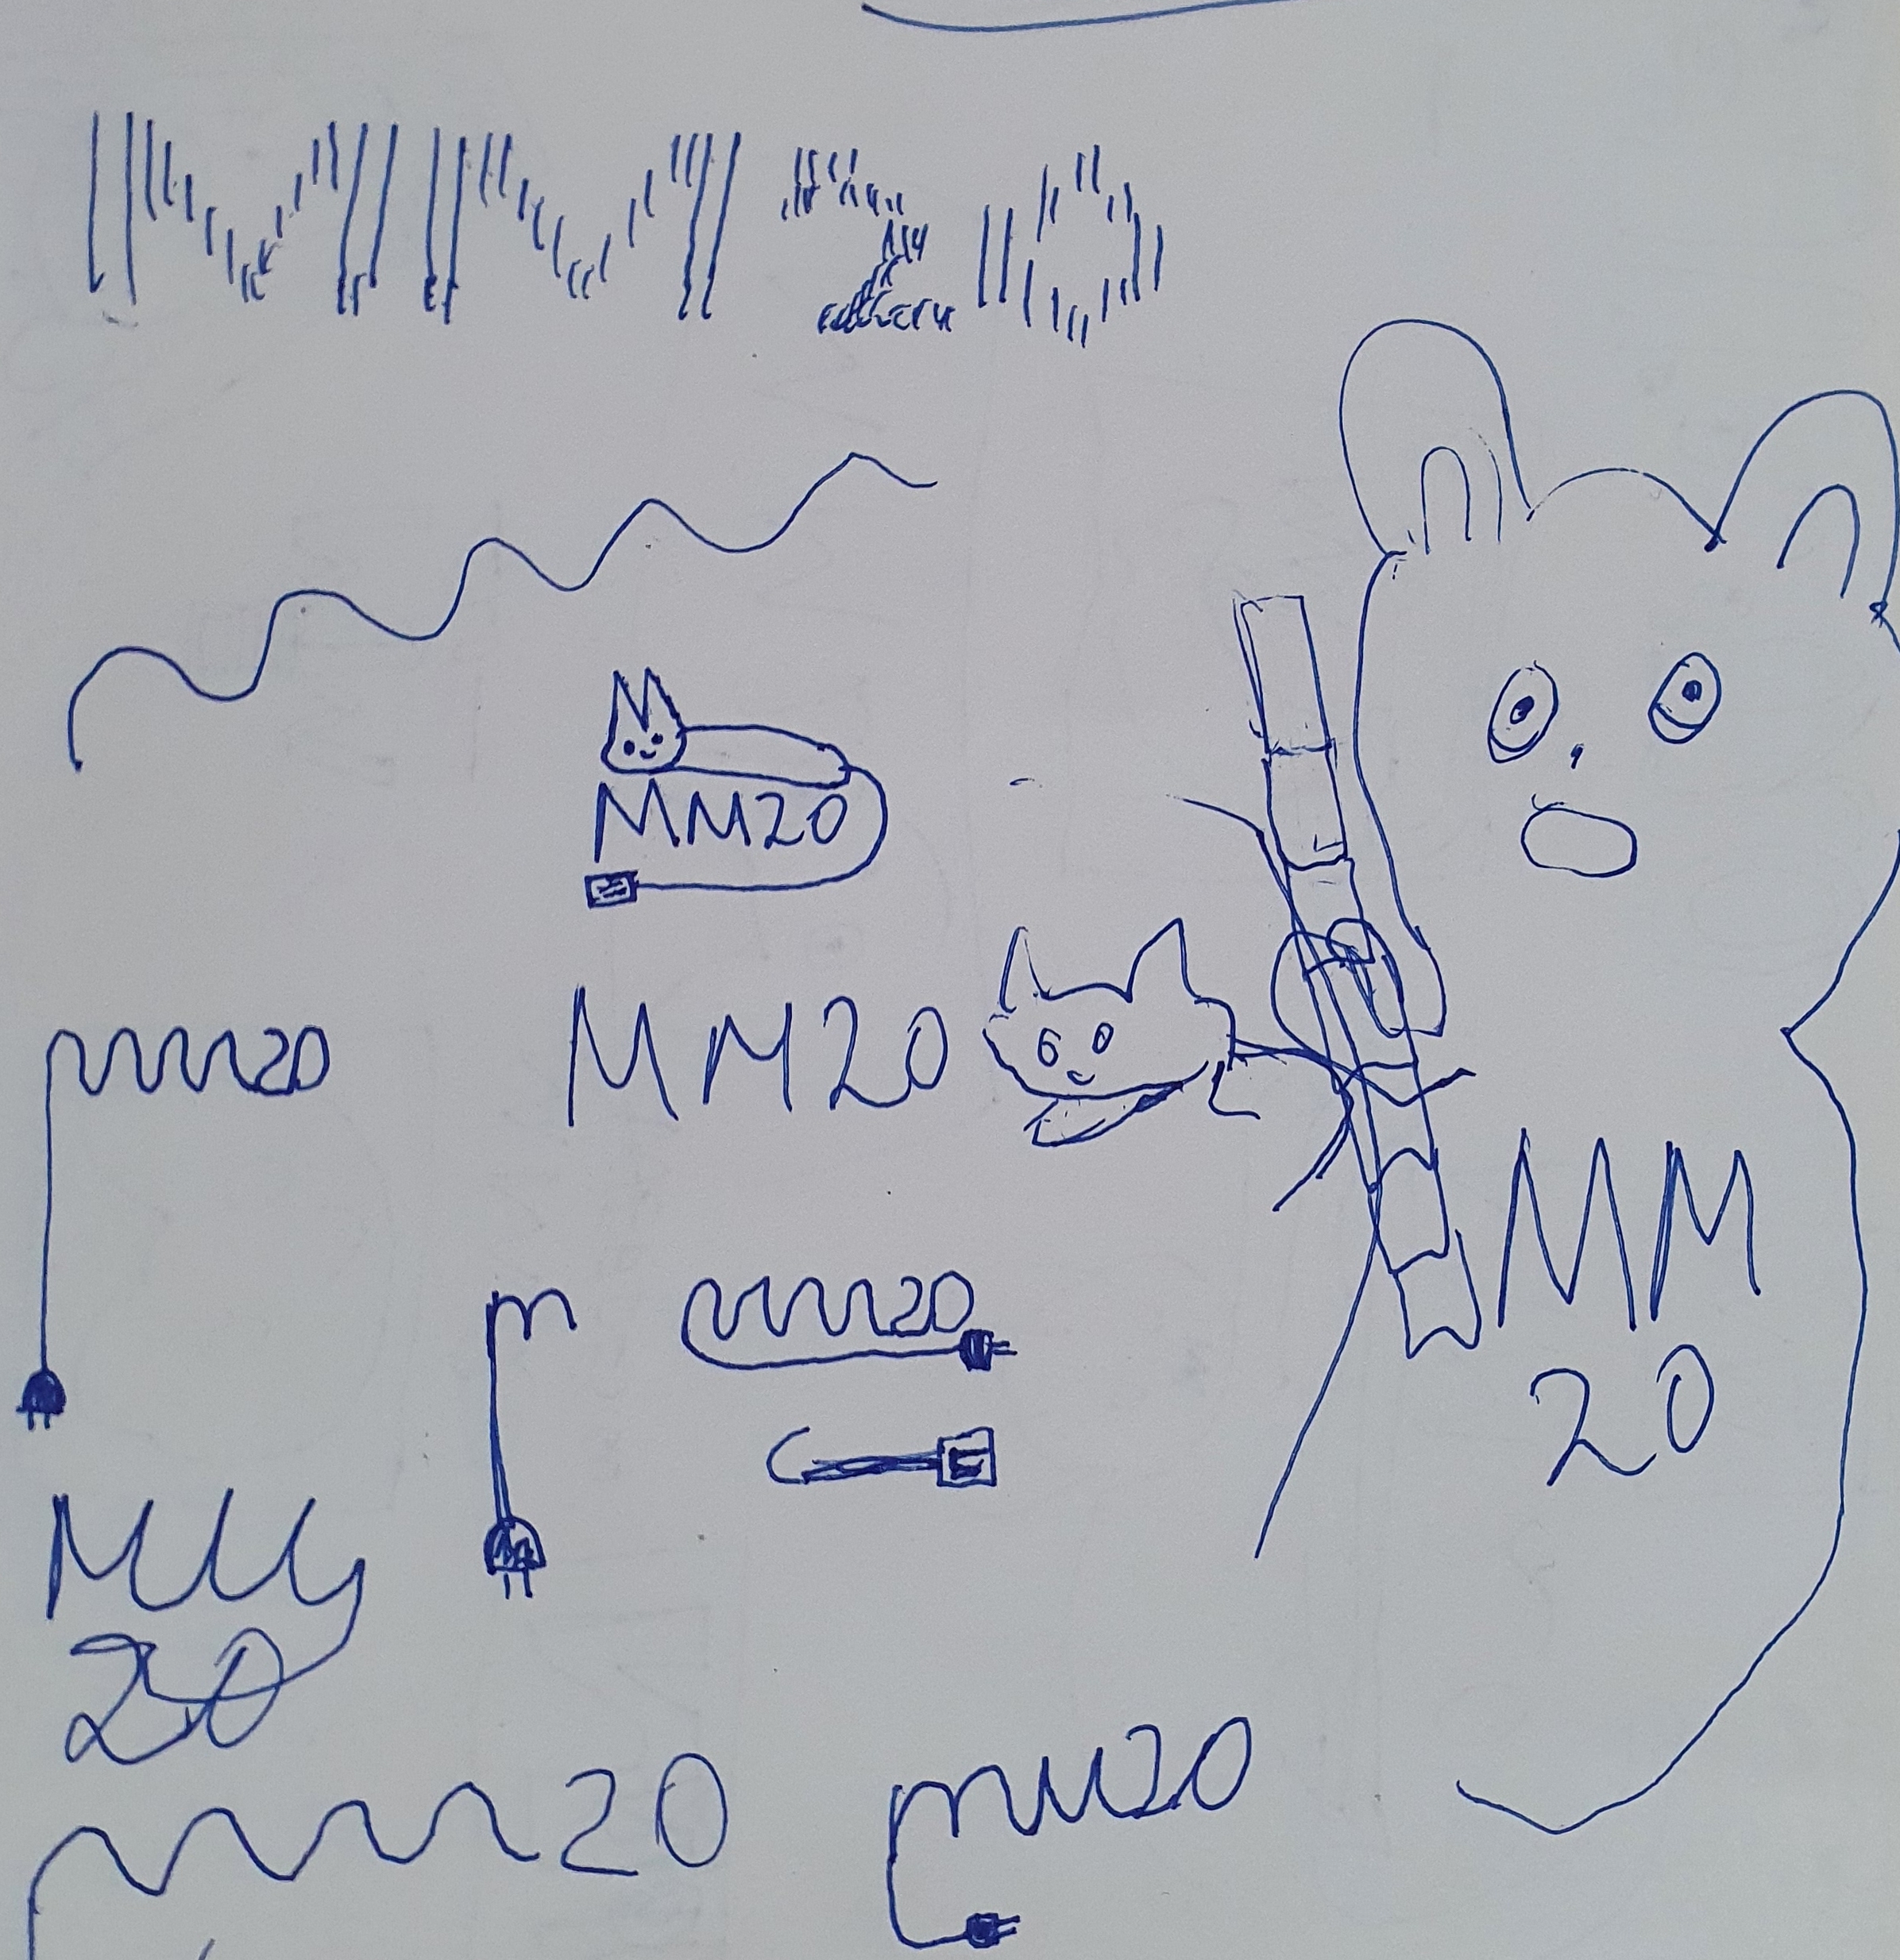 MM20
MM20
MM20
MM20
MM
20
m
MM20
MM
20
MM20
MM20